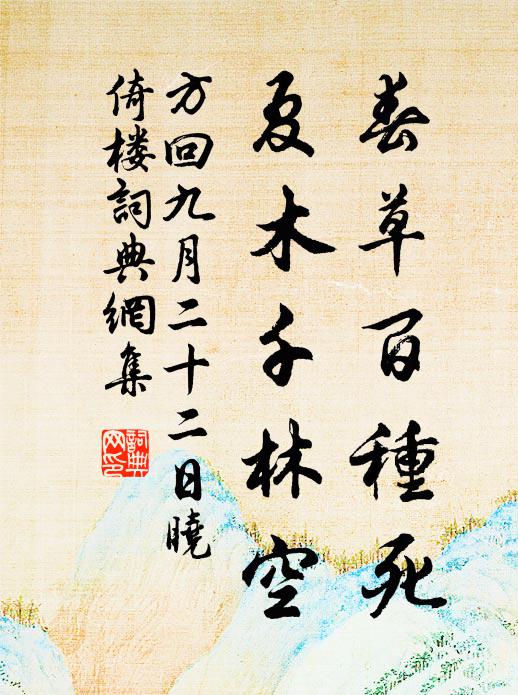 春草百種死
夏木千林空
方回九月二十二日曉
倚楼詞典網集
詞典
网印